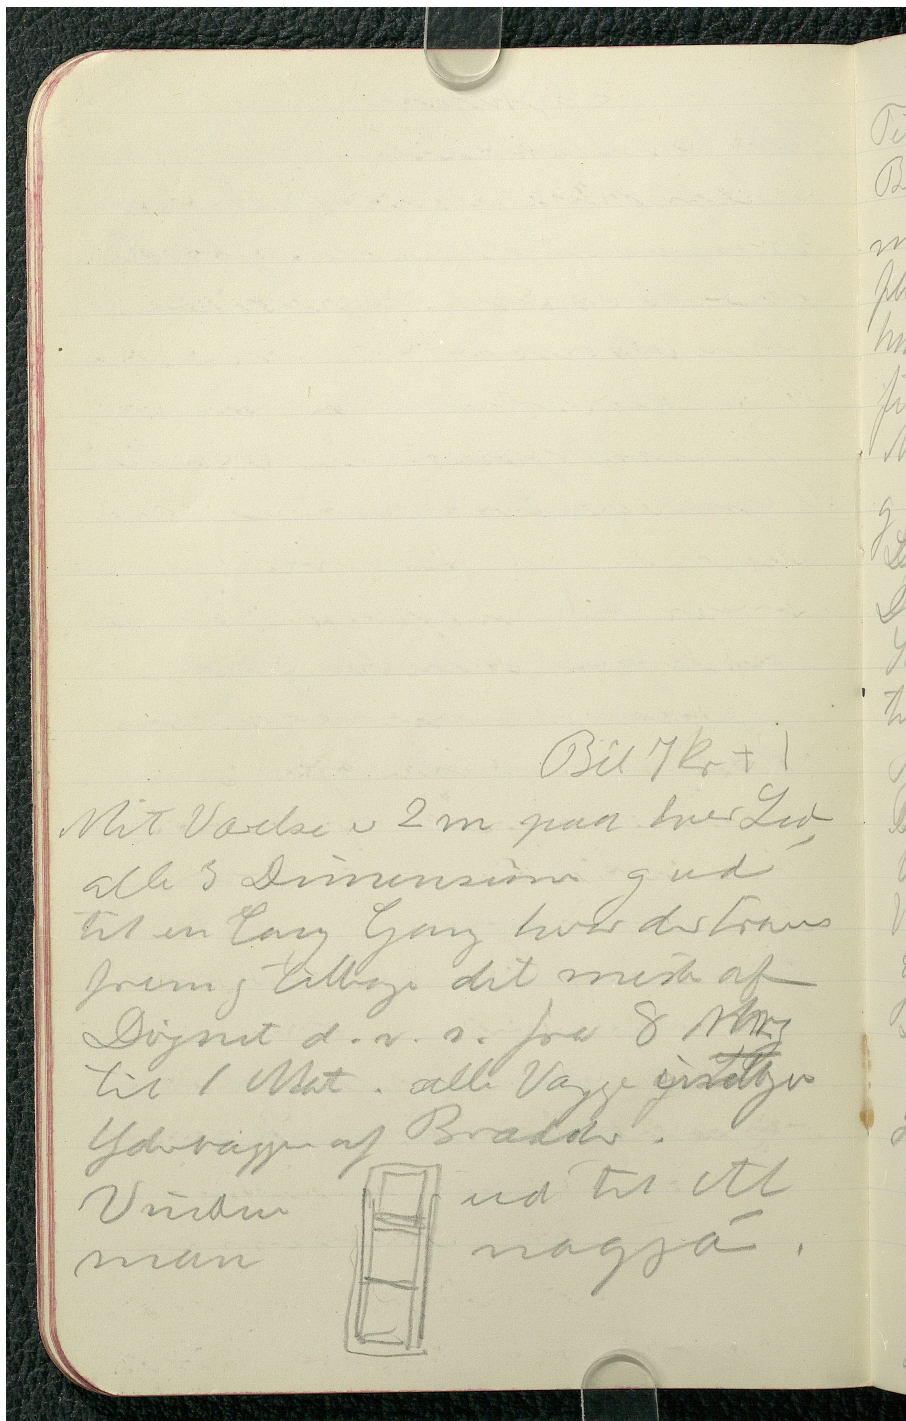 Bil 7 kr + 1
Mit Værelse er 2 m paa hver Led,
alle 3 Dimensioner g ud
til en lang Gang hvor der traves
frem g tilbage det meste af
Døgnet d.v.s. fra 8 Mrg
til 1 Nat. alle Vægge
Ydervægge af Brædder.
Vindue ud til
man